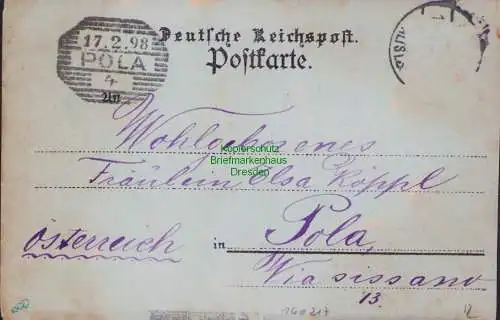 17.2.98
POLA
4
Deutsche Reichspost.
Postkarte.
An
Wohlgeborenes
Kopierschutz
Briefmarkenhaus
Dresden
Fräulein Elsa Köppl
Österreich
in Pola
Via sissano
13.